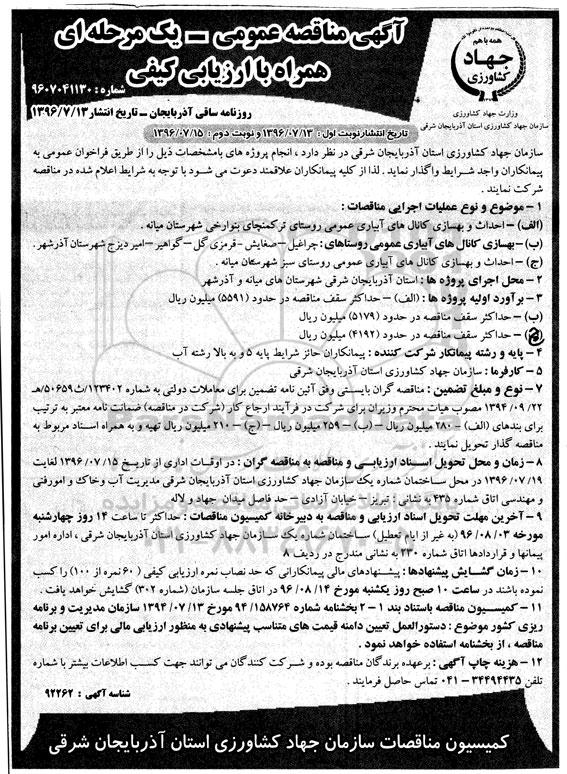 آگهی مناقصه عمومی - یک مرحله ای
همراه با ارزیابی کیفی
شماره : ۹۶۰۷۰۴۱۱۳۰
همه با هم
جهاد
کشاورزی
وزارت جهاد کشاورزی
سازمان جهاد کشاورزی استان آذربایجان شرقی
روزنامه ساقی آذربایجان - تاریخ انتشار ۱۳۹۶/۷/۱۳
تاریخ انتشار نوبت اول : ۱۳۹۶/۰۷/۱۳ و نوبت دوم : ۱۳۹۶/۰۷/۱۵
سازمان جهاد کشاورزی استان آذربایجان شرقی در نظر دارد ، انجام پروژه های بامشخصات ذیل را از طریق فراخوان عمومی به
پیمانکاران واجد شرایط واگذار نماید . لذا از کلیه پیمانکاران علاقمند دعوت می شود با توجه به شرایط اعلام شده در مناقصه
شرکت نمایند .
۱ - موضوع و نوع عملیات اجرایی مناقصات :
(الف) - احداث و بهسازی کانال های آبیاری عمومی روستای ترکمنچای بنوارخی شهرستان میانه .
(ب) - بهسازی کانال های آبیاری عمومی روستاهای : چراغیل - صغایش - قرمزی گل - گواهیر - امیر دیزج شهرستان آذرشهر .
(ج) - احداث و بهسازی کانال های آبیاری عمومی روستای سبز شهرستان میانه .
۲ - محل اجرای پروژه ها : استان آذربایجان شرقی شهرستان های میانه و آذرشهر
۳ - برآورد اولیه پروژه ها : (الف) - حداکثر سقف مناقصه در حدود (۵۵۹۱) میلیون ریال
(ب) - حداکثر سقف مناقصه در حدود (۵۱۷۹) میلیون ریال
(ج) - حداکثر سقف مناقصه در حدود (۴۱۹۲) میلیون ریال
۴ - پایه و رشته پیمانکار شرکت کننده : پیمانکاران حائز شرایط پایه ۵ و به بالا رشته آب
۵ - کارفرما : سازمان جهاد کشاورزی استان آذربایجان شرقی
۷ - نوع و مبلغ تضمین : مناقصه گران بایستی وفق آئین نامه تضمین برای معاملات دولتی به شماره ۱۲۳۴۰۲/ت۵۰۶۵۹/هـ
۱۳۹۴/۰۹/۲۲ مصوب هیات محترم وزیران برای شرکت در فرآیند ارجاع کار (شرکت در مناقصه) ضمانت نامه معتبر به ترتیب
برای بندهای (الف) - ۲۸۰ میلیون ریال - (ب) - ۲۵۹ میلیون ریال - (ج) - ۲۱۰ میلیون ریال تهیه و به همراه اسناد مربوط به
مناقصه گذار تحویل نمایند .
۸ - زمان و محل تحویل اسناد ارزیابی و مناقصه به مناقصه گران : در اوقات اداری از تاریخ ۱۳۹۶/۰۷/۱۵ لغایت
۱۳۹۶/۰۷/۱۹ در محل ساختمان شماره یک سازمان جهاد کشاورزی استان آذربایجان شرقی مدیریت آب و خاک و امور فنی
و مهندسی اتاق شماره ۴۳۵ به نشانی : تبریز - خیابان آزادی - حد فاصل میدان جهاد و لاله
۹ - آخرین مهلت تحویل اسناد ارزیابی و مناقصه به دبیرخانه کمیسیون مناقصات : حداکثر تا ساعت ۱۴ روز چهارشنبه
مورخه ۹۶/۰۸/۰۳ (به غیر از ایام تعطیل) ساختمان شماره یک سازمان جهاد کشاورزی استان آذربایجان شرقی ، اداره امور
پیمانها و قراردادها اتاق شماره ۲۳۰ به نشانی مندرج در ردیف ۸
۱۰ - زمان گشایش پیشنهادها : پیشنهادهای مالی پیمانکارانی که حد نصاب نمره ارزیابی کیفی (۶۰ نمره از ۱۰۰) را کسب
نموده باشند در ساعت ۱۰ صبح روز یکشنبه مورخ ۹۶/۰۸/۱۴ در اتاق جلسه سازمان (شماره ۳۰۲) گشایش خواهد یافت .
۱۱ - کمیسیون مناقصه باستناد بند ۱ - ۲ بخشنامه شماره ۹۴/۱۵۸۷۶۴ مورخ ۱۳۹۴/۰۷/۱۳ سازمان مدیریت و برنامه
ریزی کشور موضوع : دستورالعمل تعیین دامنه قیمت های متناسب پیشنهادی به منظور ارزیابی مالی برای تعیین برنامه
مناقصه ، از بخشنامه استفاده خواهد نمود .
۱۲ - هزینه چاپ آگهی : برعهده برندگان مناقصه بوده و شرکت کنندگان می توانند جهت کسب اطلاعات بیشتر با شماره
تلفن ۳۴۴۹۴۴۳۵ - ۰۴۱ تماس حاصل فرمایند .
شناسه آگهی : ۹۲۲۶۲
کمیسیون مناقصات سازمان جهاد کشاورزی استان آذربایجان شرقی